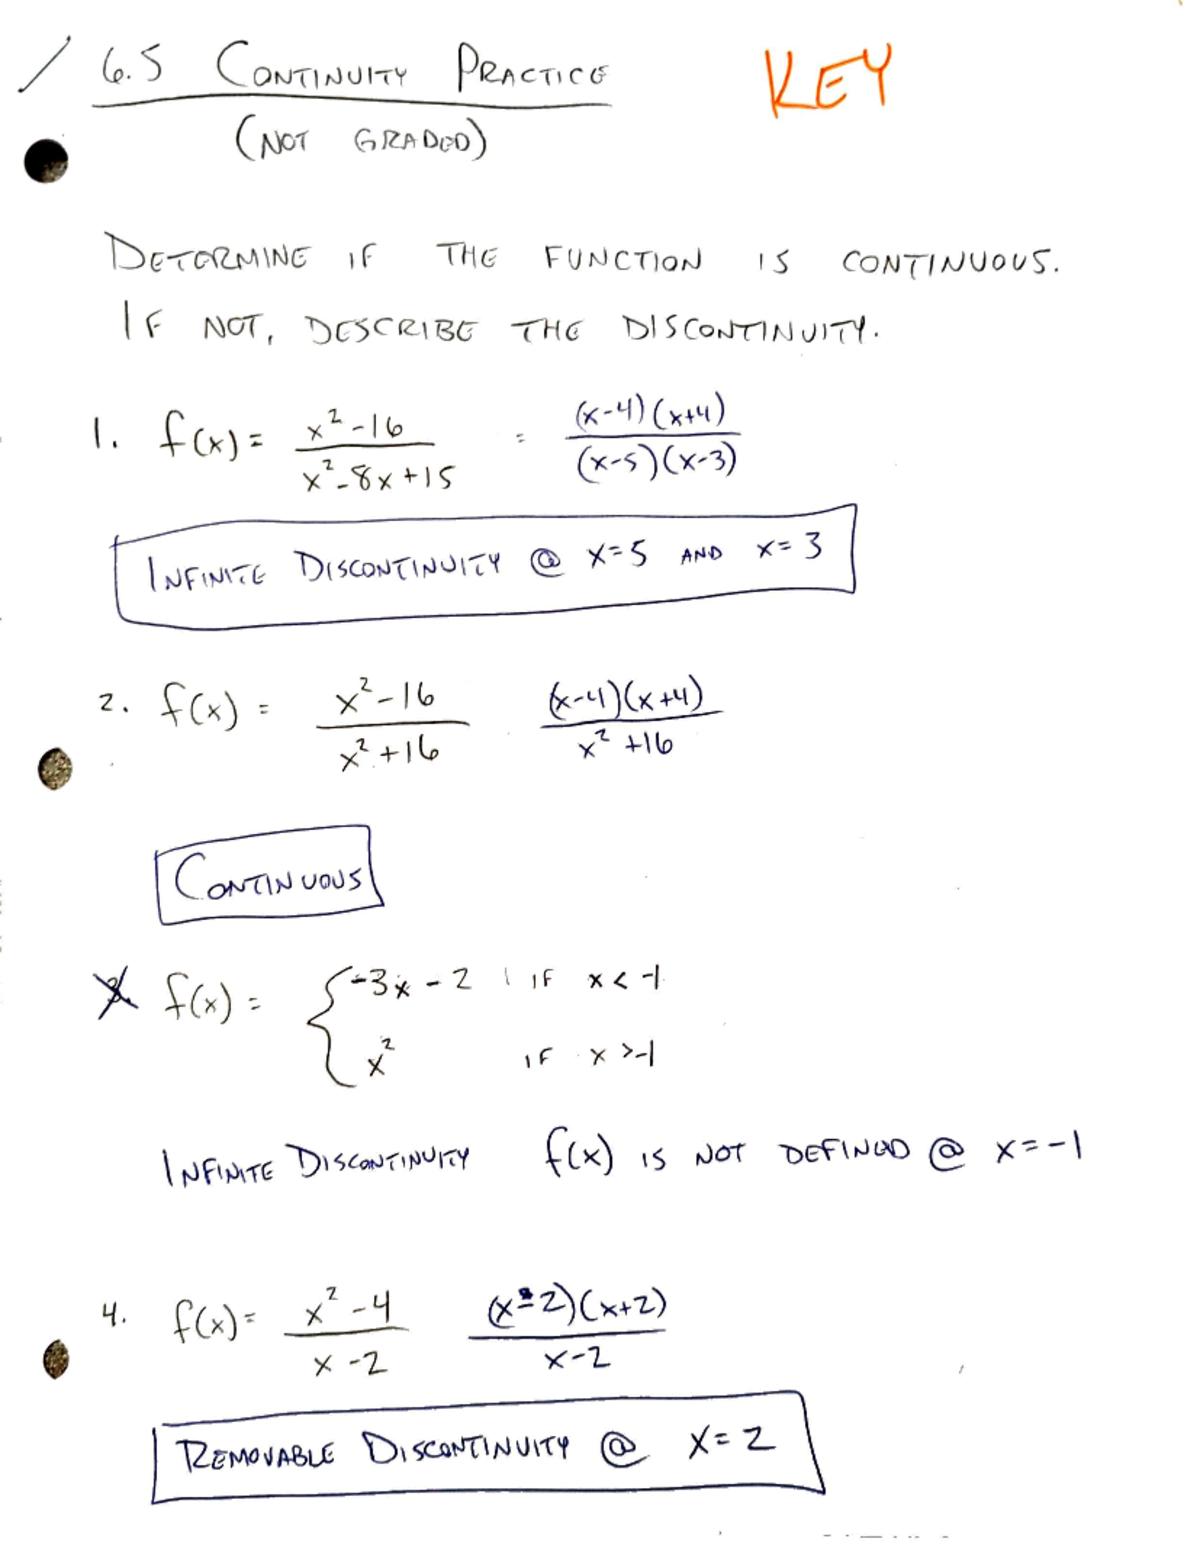 6.5 CONTINUITY PRACTICE KEY
(NOT GRADED)
DETERMINE IF THE FUNCTION IS CONTINUOUS.
IF NOT, DESCRIBE THE DISCONTINUITY.
1. f(x) = (x²-16)/(x²-8x+15) = ((x-4)(x+4))/((x-5)(x-3))
INFINITE DISCONTINUITY @ x=5 AND x=3
2. f(x) = (x²-16)/(x²+16) ((x-4)(x+4))/(x²+16)
CONTINUOUS
f(x) = { -3x-2 IF x<-1
x² IF x>-1
INFINITE DISCONTINUITY f(x) IS NOT DEFINED @ x=-1
4. f(x) = (x²-4)/(x-2) ((x-2)(x+2))/(x-2)
REMOVABLE DISCONTINUITY @ x=2